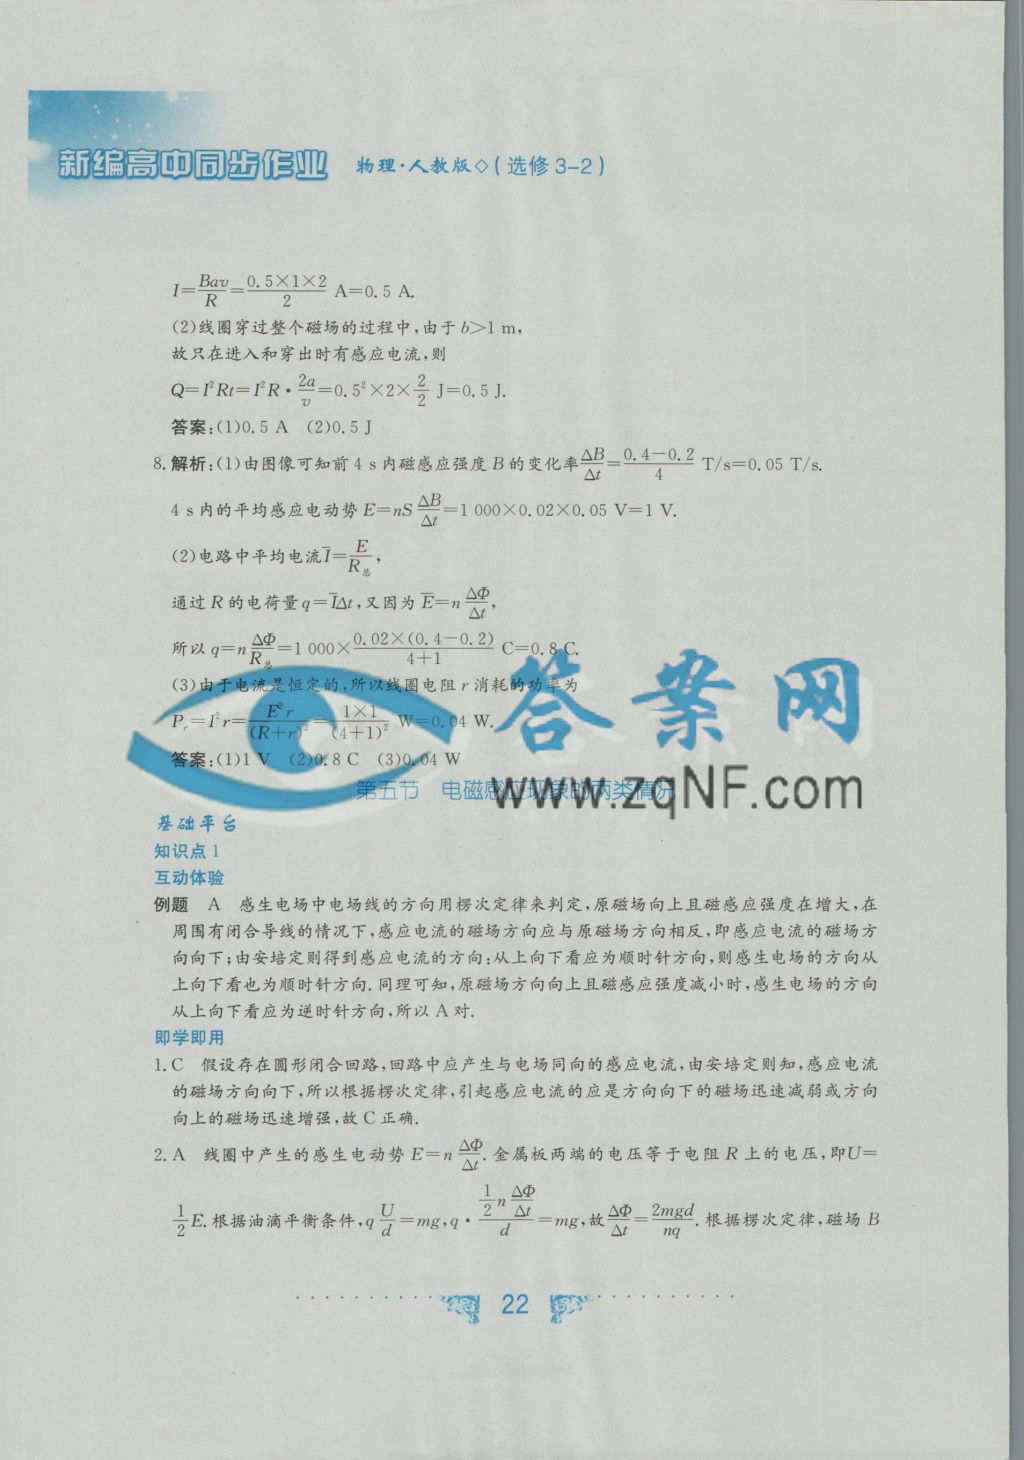 新编高中同步作业 物理·人教版◇(选修3-2)
I=Bav/R=0.5×1×2/2 A=0.5 A.
(2)线圈穿过整个磁场的过程中,由于b>1 m,
故只在进入和穿出时有感应电流,则
Q=I²Rt=I²R·2a/v=0.5²×2×2/2 J=0.5 J.
答案:(1)0.5 A (2)0.5 J
8.解析:(1)由图像可知前4 s内磁感应强度B的变化率ΔB/Δt=0.4-0.2/4 T/s=0.05 T/s.
4 s内的平均感应电动势E=nSΔB/Δt=1 000×0.02×0.05 V=1 V.
(2)电路中平均电流I̅=E/R总,
通过R的电荷量q=I̅Δt,又因为E̅=nΔΦ/Δt,
所以q=nΔΦ/R总=1 000×0.02×(0.4-0.2)/4+1 C=0.8 C.
(3)由于电流是恒定的,所以线圈电阻r消耗的功率为
Pr=I²r=E²r/(R+r)²=1×1/(4+1)² W=0.04 W.
答案:(1)1 V (2)0.8 C (3)0.04 W
答案网
www.zqNF.com
第五节 电磁感应现象的两类情况
基础平台
知识点1
互动体验
例题 A 感生电场中电场线的方向用楞次定律来判定,原磁场向上且磁感应强度在增大,在
周围有闭合导线的情况下,感应电流的磁场方向应与原磁场方向相反,即感应电流的磁场方
向向下;由安培定则得到感应电流的方向:从上向下看应为顺时针方向,则感生电场的方向从
上向下看也为顺时针方向.同理可知,原磁场方向向上且磁感应强度减小时,感生电场的方向
从上向下看应为逆时针方向,所以A对.
即学即用
1.C 假设存在圆形闭合回路,回路中应产生与电场同向的感应电流,由安培定则知,感应电流
的磁场方向向下,所以根据楞次定律,引起感应电流的应是方向向下的磁场迅速减弱或方向
向上的磁场迅速增强,故C正确.
2.A 线圈中产生的感生电动势E=nΔΦ/Δt.金属板两端的电压等于电阻R上的电压,即U=
1/2E.根据油滴平衡条件,qU/d=mg,q·1/2nΔΦ/Δt/d=mg,故ΔΦ/Δt=2mgd/nq.根据楞次定律,磁场B
22